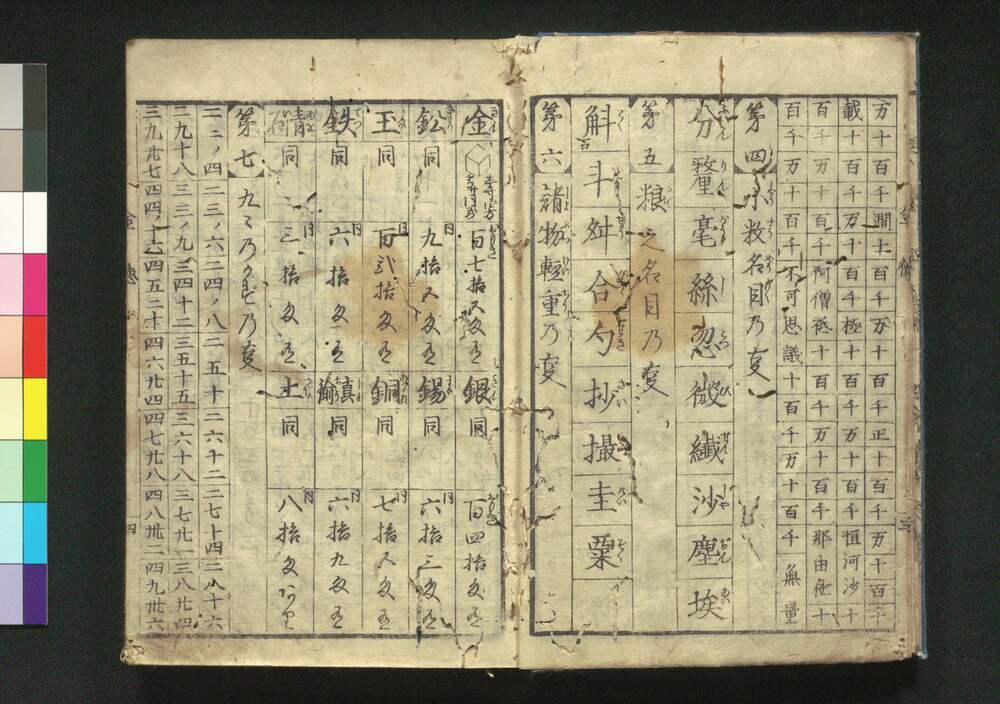 万十百千澗十百千万十百千正十百千万十百千
載十百千万十百千極十百千万十百千恒河沙十
百千万十百千阿僧祇十百千万十百千那由他十
百千万十百千不可思議十百千万十百千無量
第四小数名目乃事
分釐毫絲忽微繊沙塵埃
第五粮之名目乃事
斛斗舛合勺抄撮圭粟
第六諸物軽重乃事
金 寸方 百七拾五匁 銀同 百四拾匁
鈆同 九拾五匁 錫同 六拾三匁
玉同 百弐拾匁 銅同 七拾五匁
鉄同 六拾匁 鍮同 六拾九匁
青石同 三拾匁 土同 八拾匁
第七九々乃事
二二ノ四二三ノ六二四ノ八二五十二六十二二七十四二八十六
二九十八三三ノ九三四十二三五十五三六十八三七廿一三八廿四
三九廿七四四ノ十六四五二十四六廿四四七廿八四八卅二四九卅六
四